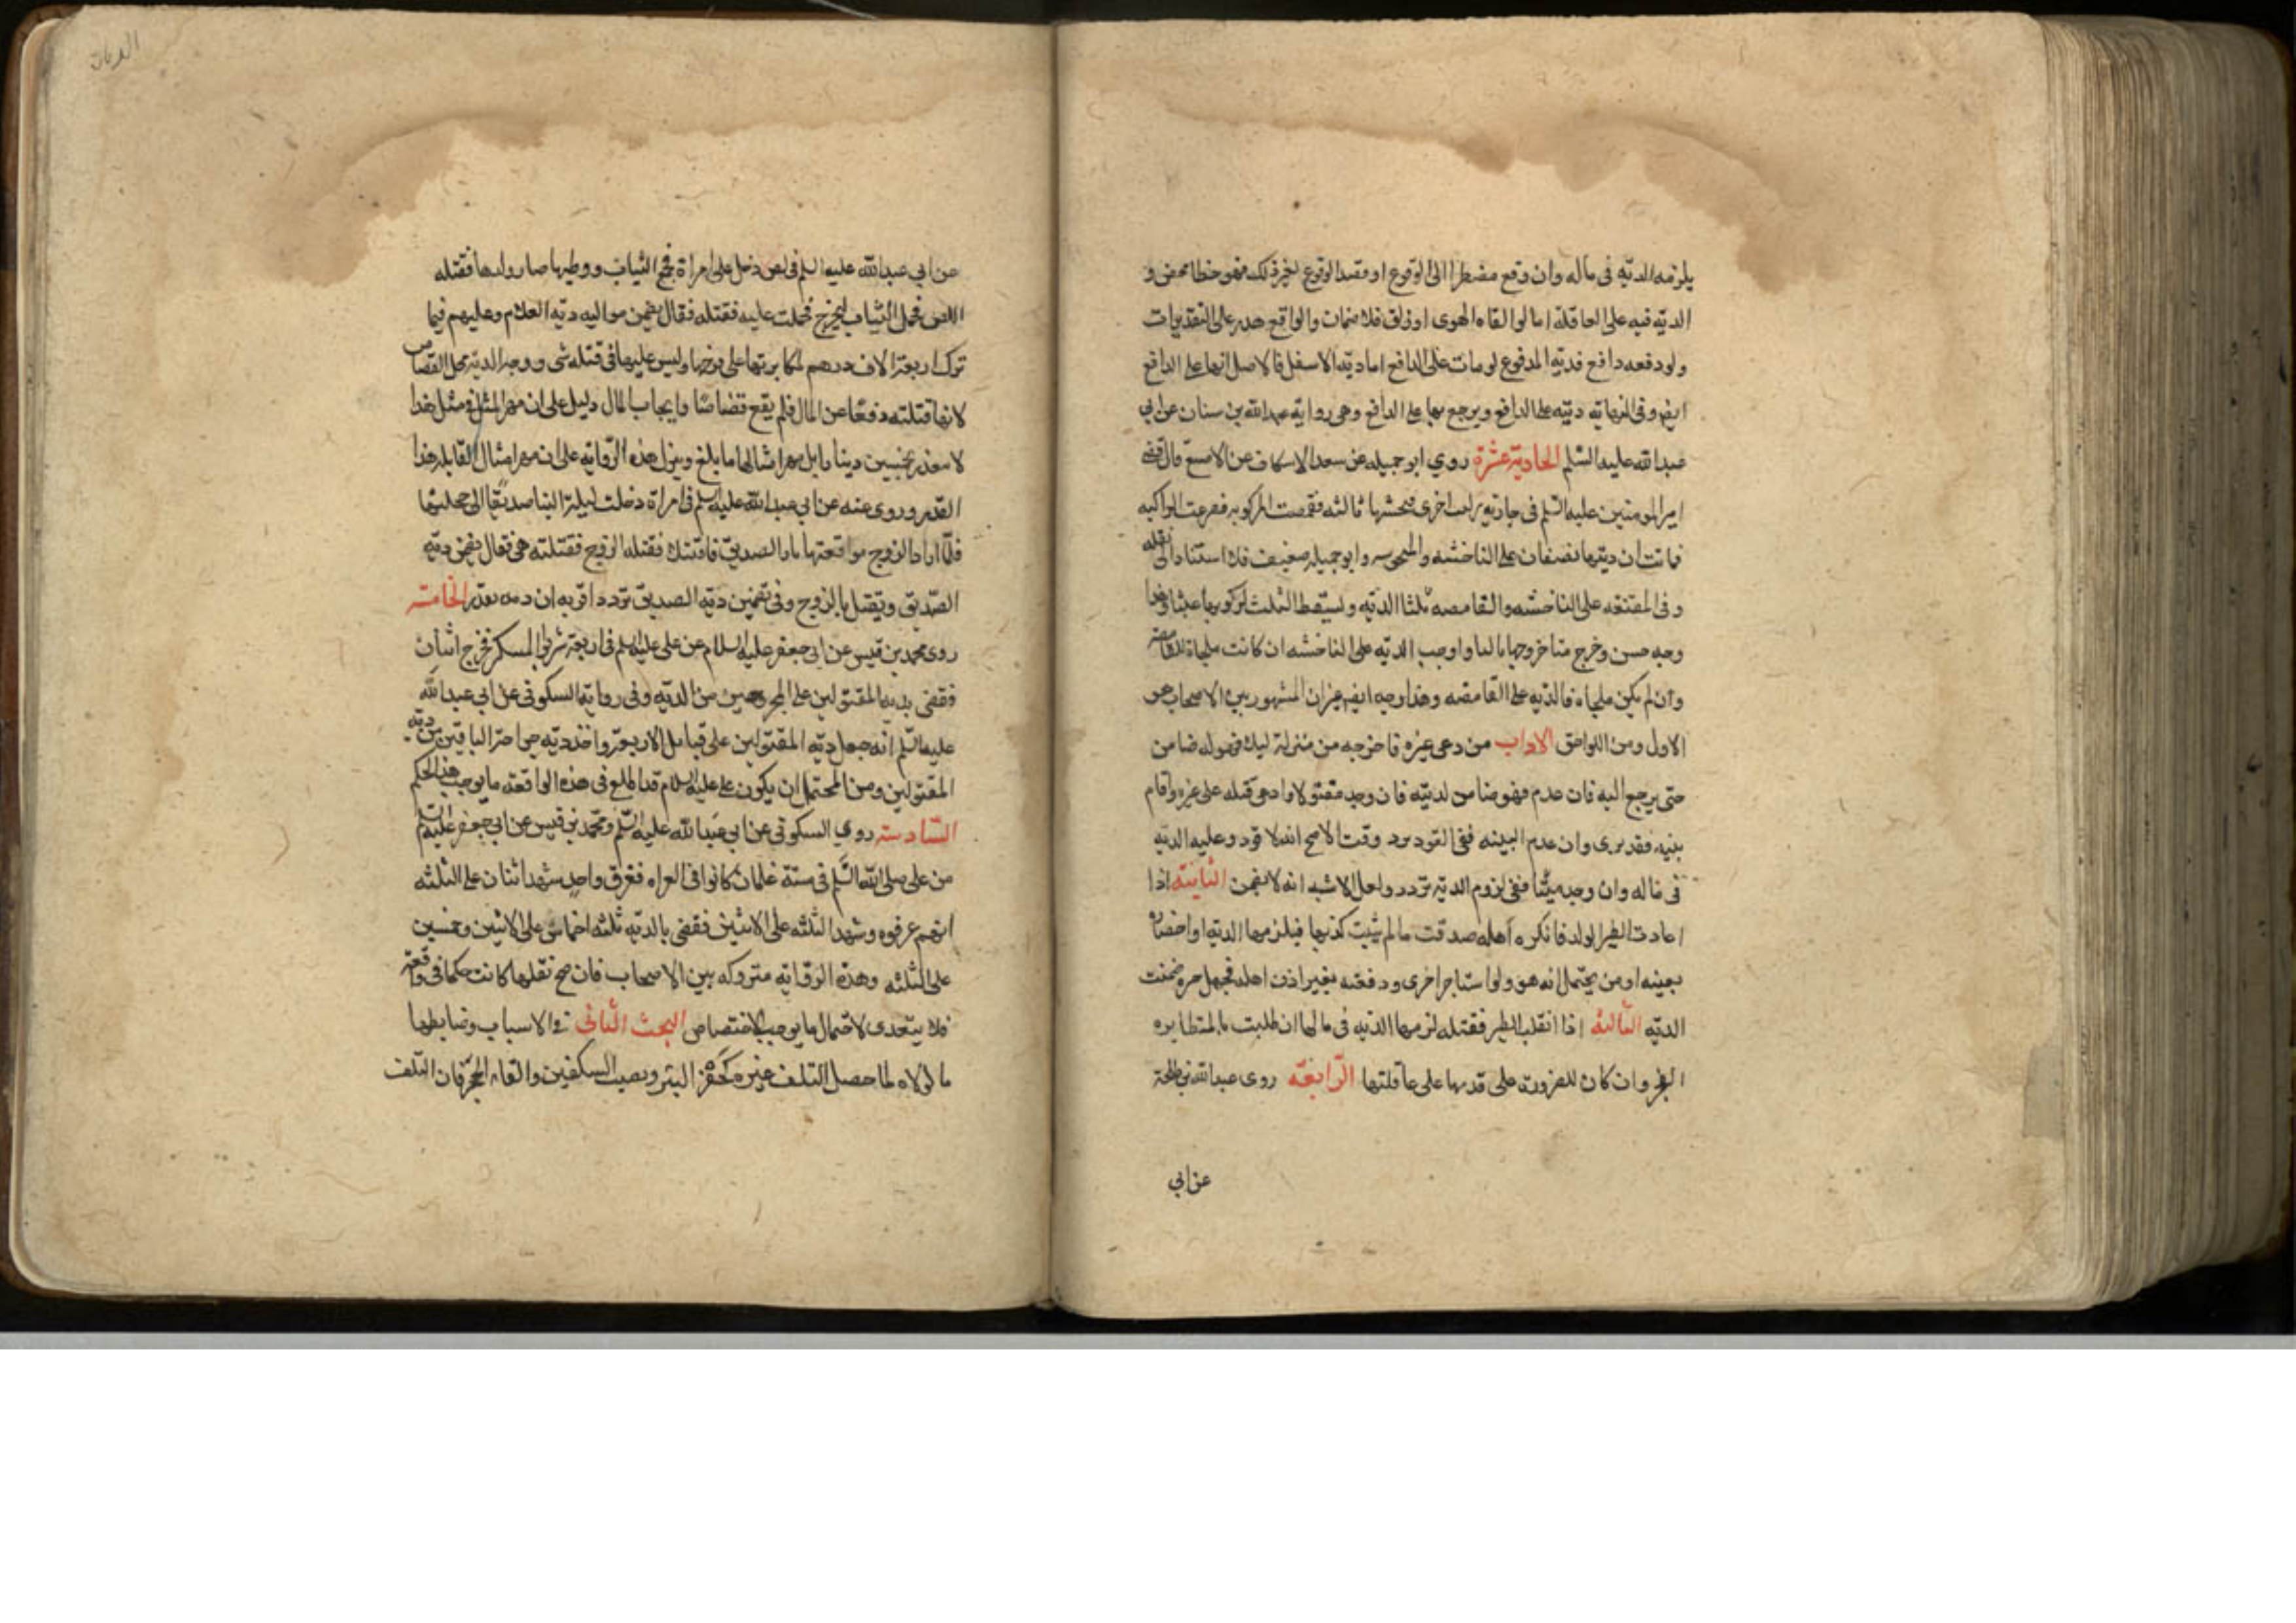 يلزمه الدية في ماله وان وقع مضطرا الى الوقوع او قصد الوقوع لغير ذلك فهو خطا محض و
الدية فيه على العاقلة اما لو القاه الهوى او زلق فلا ضمان والواقع هدر على التقديرات
ولو دفعه دافع فدية المدفوع لو مات على الدافع اما دية الاسفل فالاصل انها على الدافع
ايضا وفي النهاية ديته على الواقع ويرجع بها على الدافع وهي رواية عبدالله بن سنان عن ابي
عبدالله عليه السلم الحادية عشرة روي ابو جميله عن سعد الاسكاف عن الاصبغ قال قضى
امير المومنين عليه السلم في جارية ركبت اخرى فنخستها ثالثه فقمصت المركوبه فصرعت الراكبه
فماتت ان ديتها نصفان على الناخسه والمنخوسه وابو جميله ضعيف فلا استناد الى نقله
وفي المقنعه على الناخسه والقامصه ثلثا الديه ويسقط الثلث لركوبها عبثا وهذا
وجه حسن وخرج متاخر وجها ثالثا واوجب الديه على الناخسه ان كانت ملجاة للقامصه
وان لم يكن ملجاه فالديه على القامصه وهذا وجه ايضا غير ان المشهور بين الاصحاب هو
الاول ومن اللواحق الاداب من دعى غيره فاخرجه من منزله ليلا فهو له ضامن
حتى يرجع اليه فان عدم فهو ضامن لديته فان وجد مقتولا وادعى قتله على غيره واقام
بينه فقد برى وان عدم البينه ففي القود تردد وقت الاصح انه لا قود وعليه الديه
في ماله وان وجد ميتا ففي لزوم الدية تردد ولعل الاشبه انه لا يضمن الثانية اذا
اعادت الظير الولد فانكره اهله صدقت ما لم يثبت كذبها فيلزمها الدية او احضاره
بعينه او من يحتمل انه هو ولو استاجر اخرى ودفعته بغير اذن اهله فجهل خبره ضمنت
الديه الثالثة اذا انقلب الظير فقتله لزمها الديه في مالها ان طلبت بالمظايره
الفخر وان كان للضرورة على قديتها على عاقلتها الرابعة روى عبدالله بن طلحة
عن ابي
الديات
عن ابي عبدالله عليه السلم في لص دخل على امراة فجمع الثياب ووطيها صار ولدها فقتله
اللص فحمل الثياب ليخرج فحملت عليه فقتلته فقال يضمن مواليه دية الغلام وعليهم فيما
ترك اربعة الاف درهم لمكابرتها على فرجها وليس عليها في قتله شى ووجه الدية محل القصاص
لانها قتلته دفعا عن المال فلم يقع قصاصا وايجاب المال دليل على ان مهر المثل في مثل هذا
لا يتقدر بخمسين دينارا بل بمهر امثالها ما بلغ وينزل هذه الرواية على ان مهر امثال القابله هذا
القدر وروى عنه عن ابي عبدالله عليه السلم في امراة دخلت ليلة البنا صديقا الى حجلتها
فلما اراد الزوج مواقعتها ثار الصديق فاقتتلا فقتله الزوج فقتلته هي فقال يضمن دية
الصديق ويقتل بالزوج وفي تضمين دية الصديق تردد اقربه ان دمه هدر الخامسة
روى محمد بن قيس عن ابي جعفر عليه السلام عن على عليه السلم في اربعة شربوا المسكر فجرح اثنان
فقضى بدية المقتولين على المجروحين من الديه وفي رواية السكوني عن ابي عبدالله
عليه السلم انه جعل دية المقتولين على قبايل الاربعة واخذ دية جراحة الباقين من دية
المقتولين ومن المحتمل ان يكون على عليه السلام قد اطلع في هذه الواقعه ما يوجب هذا الحكم
السادسة روي السكوني عن ابي عبدالله عليه السلم ومحمد بن قيس عن ابي جعفر عليه السلم
عن على صلى الله السلم في ستة غلمان كانوا في الفراه فغرق واحد شهد اثنان على الثلثه
انهم غرقوه وشهد الثلثه على الاثنين فقضى بالدية ثلثه اخماس على الاثنين وخمسين
على الثلثه وهذه الرواية متروكه بين الاصحاب فان صح نقلها كانت حكما في واقعة
فلا يتعدى لاحتمال ما يوجب الاختصاص البحث الثاني في الاسباب وضابطها
ما لولاه لما حصل التلف غيره كحفر البئر ونصب السكين والقاء الحجر فان التلف